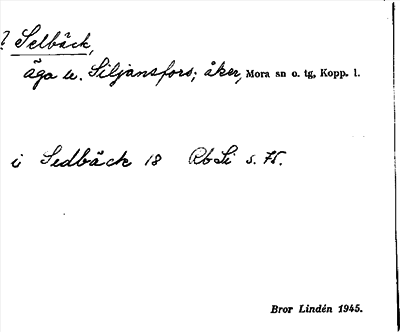 ? Selbäck,
äga u. Siljansfors; åker, Mora sn o. tg, Kopp. l.
i Sedbäck 18 Rb Si s. 75.
Bror Lindén 1945.